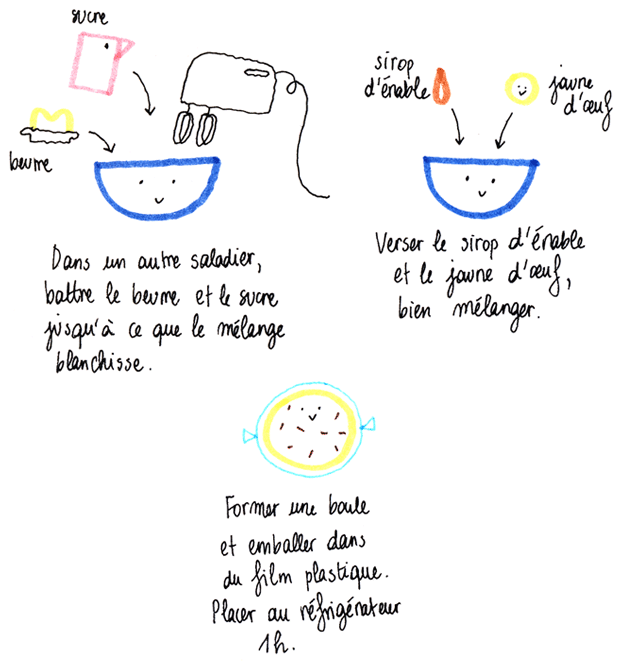 sucre
beurre
Dans un autre saladier,
battre le beurre et le sucre
jusqu'à ce que le mélange
blanchisse.
sirop
d'érable
jaune
d'œuf
Verser le sirop d'érable
et le jaune d'œuf,
bien mélanger.
Former une boule
et emballer dans
du film plastique.
Placer au réfrigérateur
1h.